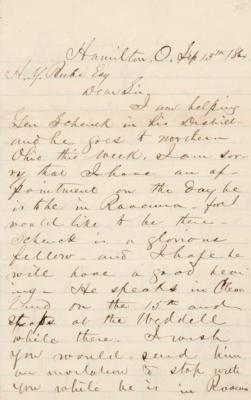 Hamilton, O. Sep 13th 186
Esq
Dear Sir
I am helping
Gen Schenck in his District
and he goes to northern
Ohio this week. I am sor-
ry that I have an ap-
pointment on the day he
is to be in Ravenna - for I
would like to be there -
Schenck is a glorious
fellow and I hope he
will have a good hear
ing - He speaks in Cleve
land on the 15th and
stops at the Weddell
while there. I wish
you would send him
an invitation to stop with
you while he is in Ravenna